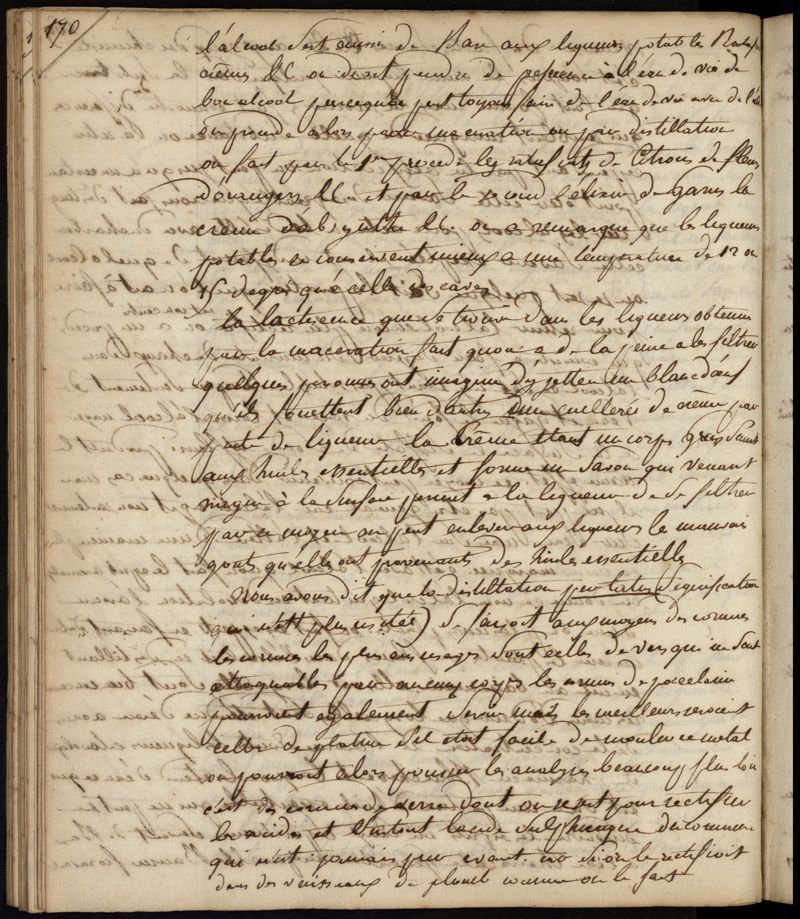 170
l'alcool sert aussi de Base aux liqueurs potables Ratafia
crêmes &C on doit prendre de preference à l'eau de vie de
bon alcool parcequ'on peut toujours faire de l'eau de vie avec de l'
on procede alors par maceration ou par distillation
on fait par le 1er procedé les ratafiats de Citrons de fleurs
d'orangers &C et par le second l'elixir de Garus la
creme d'absynthe &C. on a remarqué que les liqueurs
potables se conservent mieux a une temperature de 12 ou
15 degrés qu'a celle des caves
la lactescence que se trouve dans les liqueurs obtenues
par la maceration fait qu'on a de la peine a les filtrer
quelques personnes ont imaginé d'y jetter un blanc d'oeuf
qu'ils fouettent bien d'autres une cuellerée de creme par
pinte de liqueur la Crême etant un corps gras s'unit
aux huiles essentielles et forme un Savon qui venant
nager à la surface permet a la liqueur de se filtrer
par ce moyen on peut enlever aux liqueurs le mauvais
gout qu'elles ont provenants des huiles essentielles
Nous avons dit que la distillation per latus (signification
qui n'est plus usitée) se faisoit aux moyens des cornues
les cornues les plus en usages sont celles de verre qui ne sont
attaquables par aucuns corps les cornues de porcelaine
pourroient egalement servir mais les meilleures seroient
celles de platine s'il etoit facile de mouler ce metal
on pourroit alors pousser les analyses beaucoup plus loin
c'est des cornues de verre dont on se sert pour rectifier
les acides et surtout l'acide sulphurique du commerce
qui n'est jamais pur si on le rectifioit
dans des vaisseaux de plomb comme on le fait